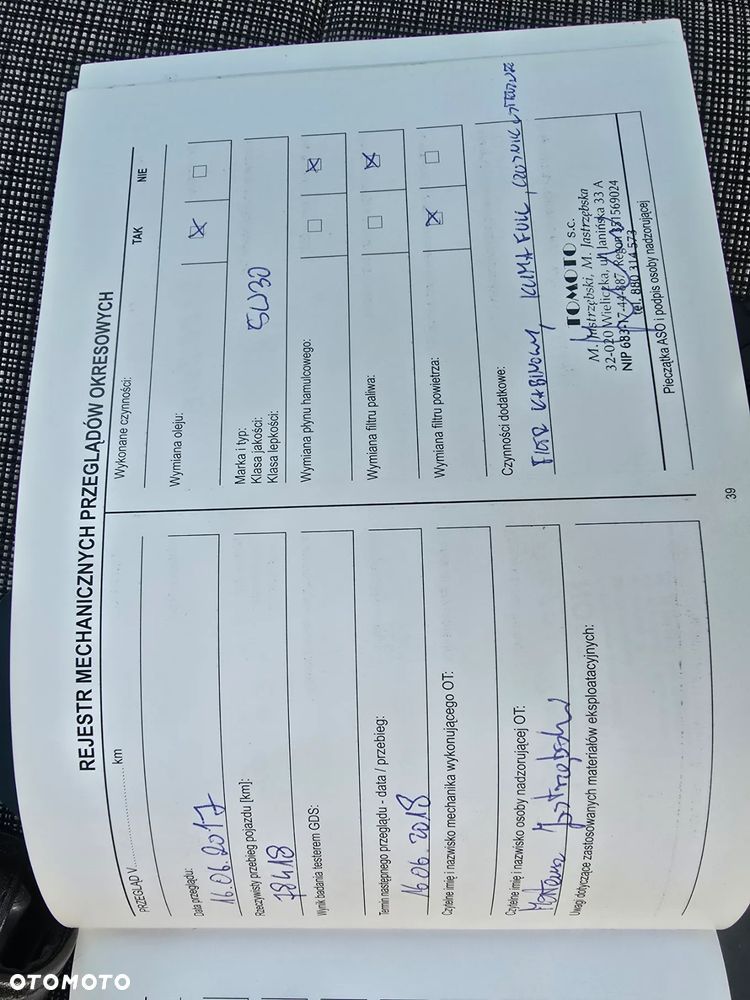 REJESTR MECHANICZNYCH PRZEGLĄDÓW OKRESOWYCH
PRZEGLĄD V. km
Data przeglądu:
16.06.2017
Rzeczywisty przebieg pojazdu [km]:
78418
Wynik badania testerem GDS:
Termin następnego przeglądu - data / przebieg:
16.06.2018
Czytelne imię i nazwisko mechanika wykonującego OT:
Czytelne imię i nazwisko osoby nadzorującej OT:
Mateusz Jastrzębski
Uwagi dotyczące zastosowanych materiałów eksploatacyjnych:
Wykonane czynności: TAK NIE
Wymiana oleju:
Marka i typ:
Klasa jakości:
Klasa lepkości: 5W30
Wymiana płynu hamulcowego:
Wymiana filtru paliwa:
Wymiana filtru powietrza:
Czynności dodatkowe:
FILTR KABINOWY, KLIMA FULL,
TOMOTO s.c.
M. Jastrzębski, M. Jastrzębska
32-020 Wieliczka, ul. Janińska 33 A
NIP 683-17-44-887, Regon 351569024
tel. 880 314 573
Pieczątka ASO i podpis osoby nadzorującej
39
OTOMOTO